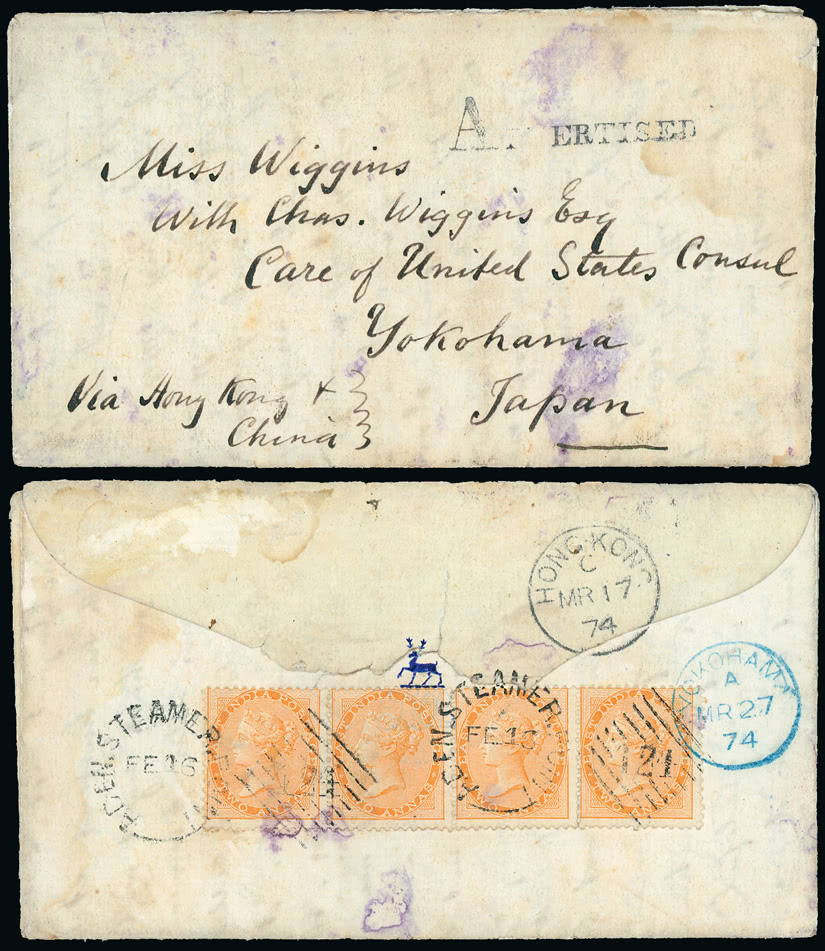 A ERTISED
Miss Wiggins
With Chas. Wiggins Esq
Care of United States Consul
Yokohama
Japan
Via Hong Kong &
China
HONG-KONG
C
MR 17
74
YOKOHAMA
A
MR 27
74
ADEN.STEAMER.POINT
FE 16
ADEN.STEAMER.POINT
FE 16
EAST INDIA POSTAGE
TWO ANNAS
124